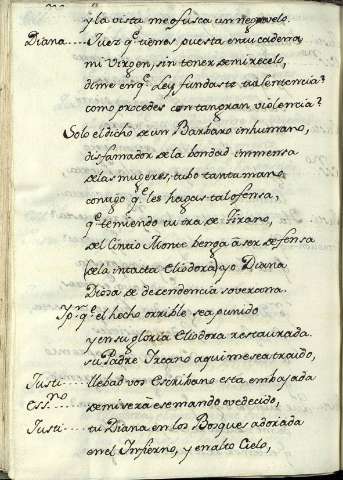 y la vista me ofusca un negro velo.
Diana.... Juez q.e tienes puesta en tu cadena,
mi Virgen, sin tener de mi recelo,
dime en q.e Ley fundaste tu sentencia?
como procedes con tan gran violencia?
Solo el dicho de un Barbaro inhumano,
disfamador de la bondad immensa
de las mugeres, tubo tanta mano
contigo q.e les hagas tal ofensa,
q.e temiendo tu ira de Tirano,
del Cintio Monte benga à ser defensa
(de la intacta Eliodora) yo Diana
Diosa de decendencia soverana.
Y p.r q.e el hecho orrible sea punido
y en su gloria Eliodora restaurada.
su Padre Ircano aqui me sea traido,
Justi.... llebad vos Escribano esta embajada
Ess.no.... de mi serà ese mando ovedecido,
Justi.... tu Diana en los Bosques adorada
en el Infierno, y en alto Cielo,